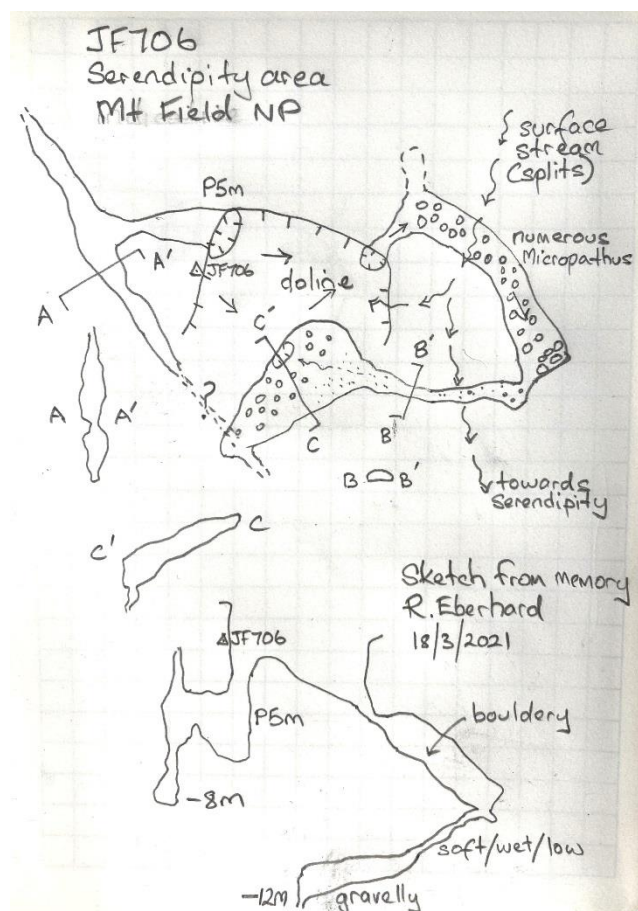 JF706
Serendipity area
Mt Field NP
surface
stream
(splits)
P5m
numerous
Micropathus
A'
JF706
doline
A
C'
B'
?
A
A'
C
B
B
B'
towards
Serendipity
C'
C
Sketch from memory
R. Eberhard
18/3/2021
JF706
P5m
bouldery
-8m
soft/wet/low
-12m
gravelly